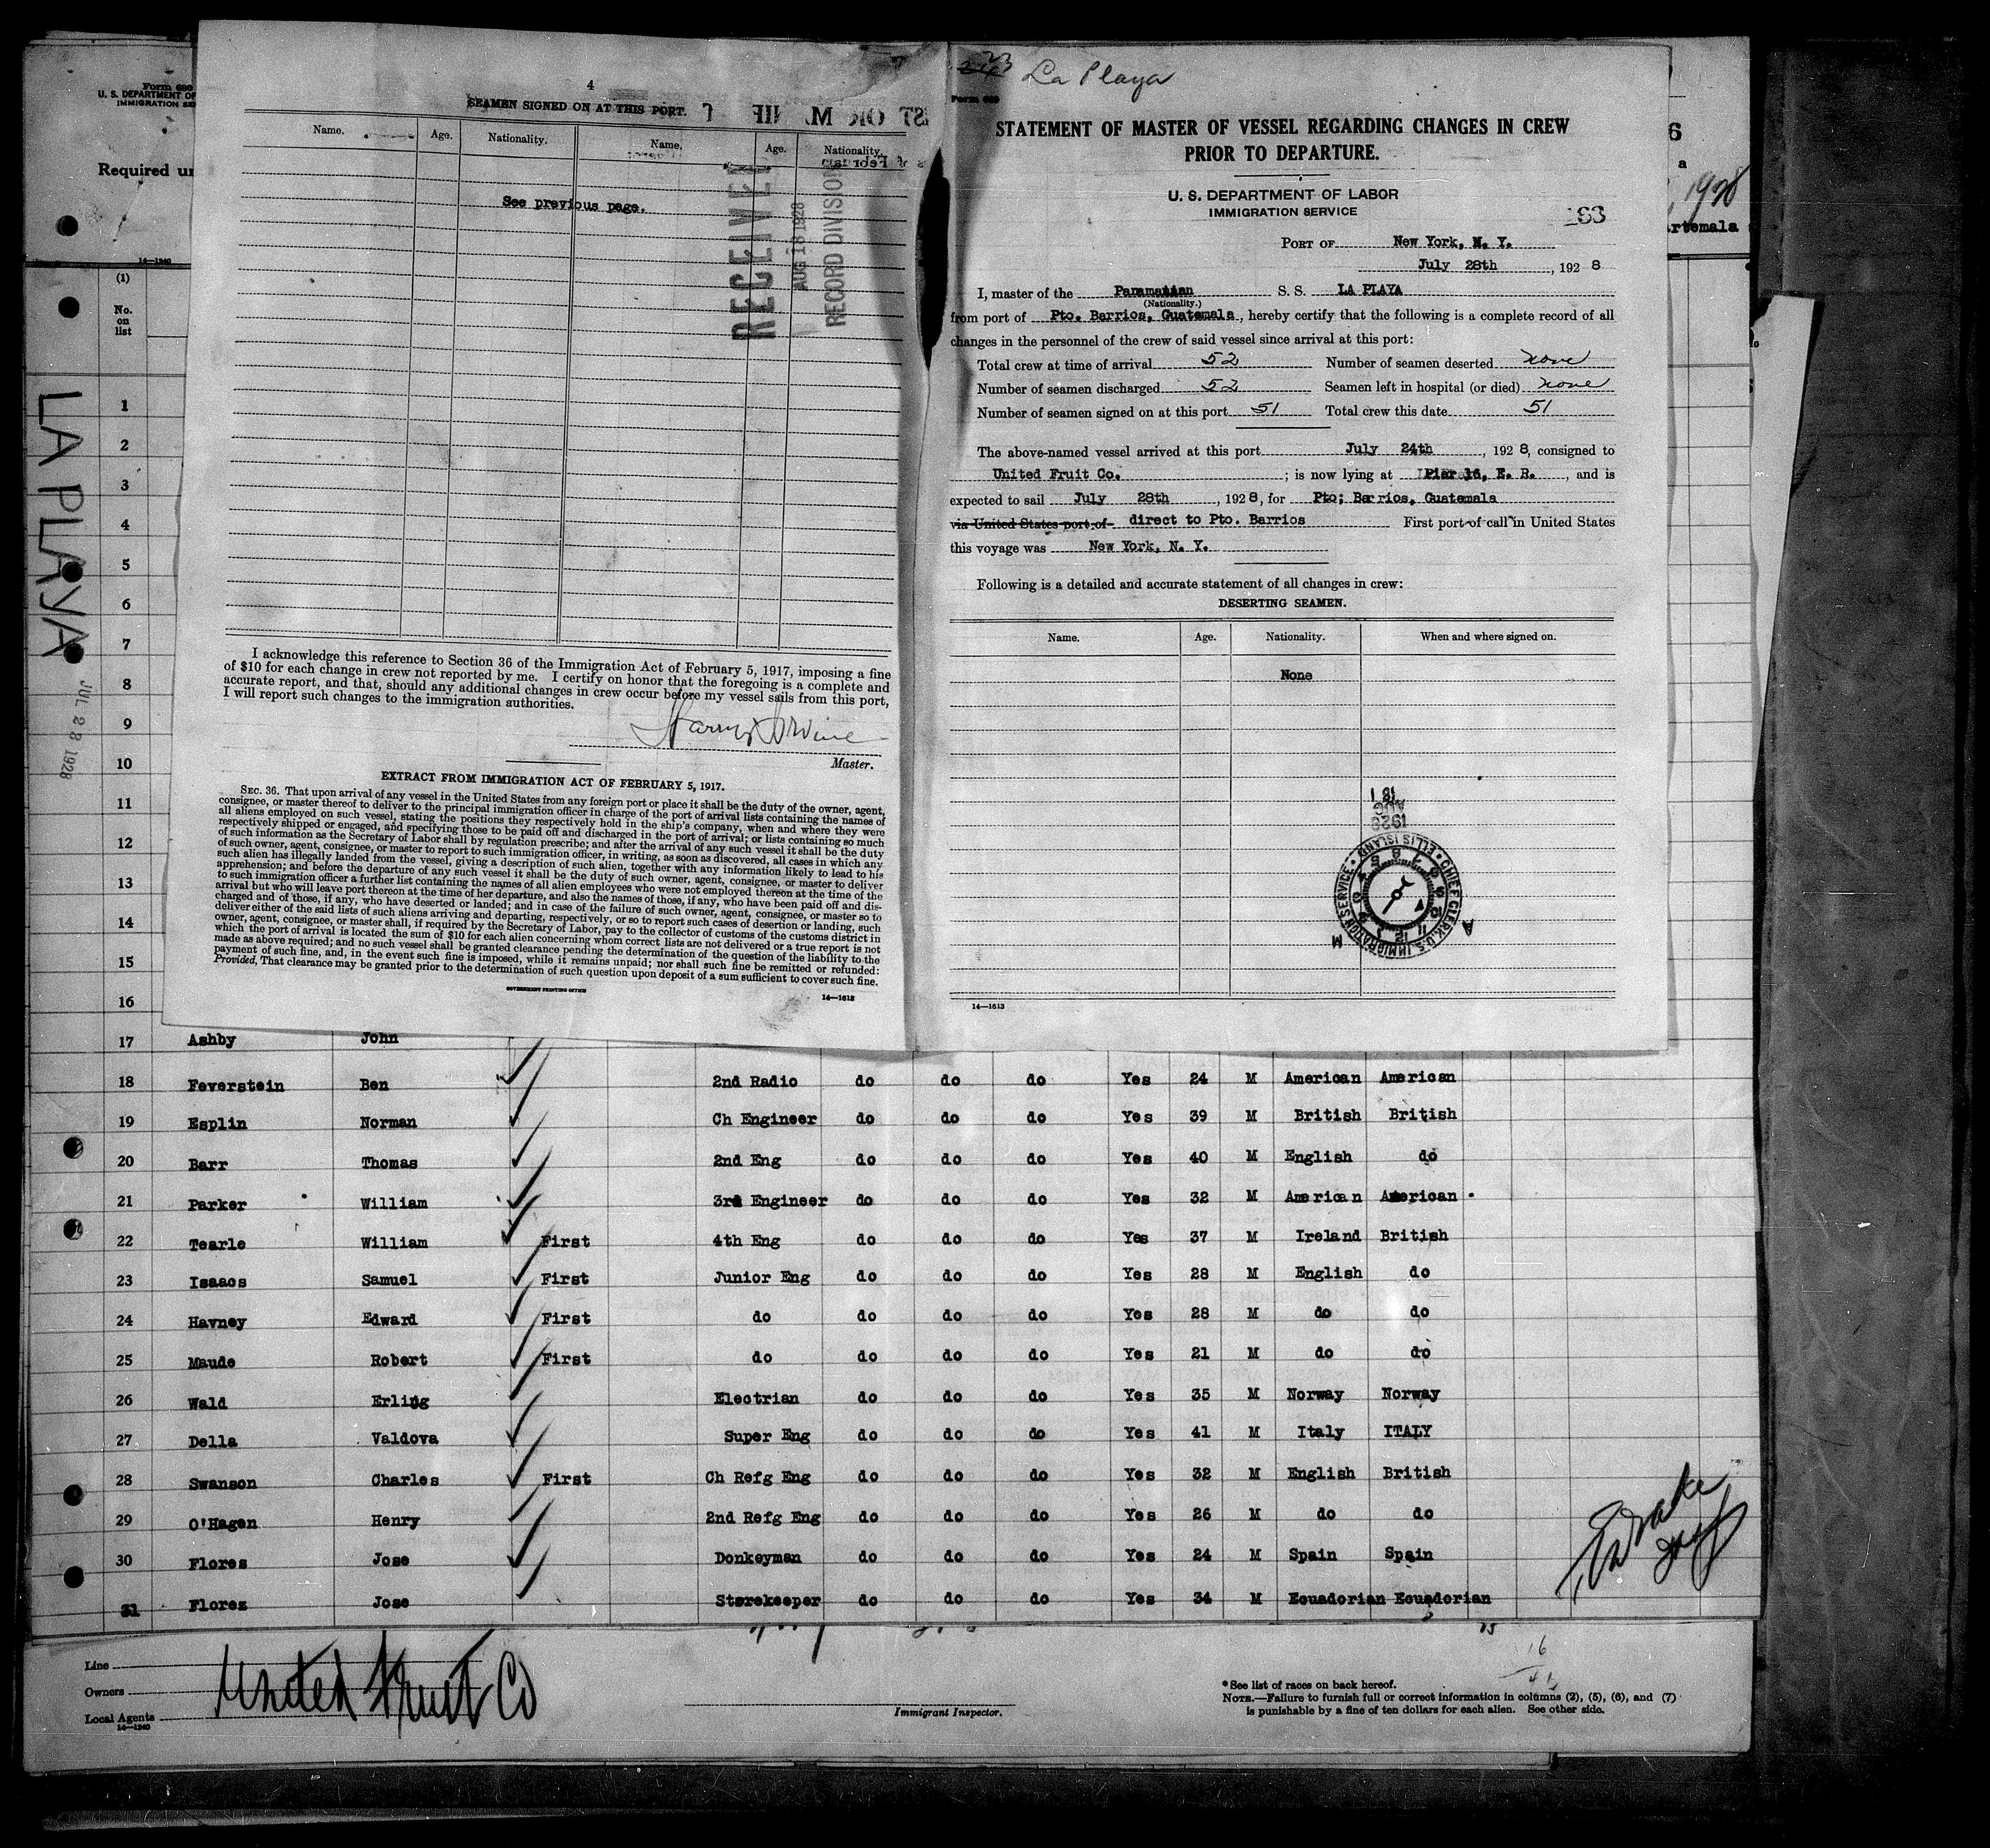 Form 680
U. S. DEPARTMENT OF
IMMIGRATION SE
Required un
14—1240
(1)
No.
on
list
LA PLAYA
JUL 28 1928
4
SEAMEN SIGNED ON AT THIS PORT.
Name. Age. Nationality. Name. Age. Nationality.
See previous page.
RECEIVED
AUG 18 1928
RECORD DIVISION
I acknowledge this reference to Section 36 of the Immigration Act of February 5, 1917, imposing a fine
of $10 for each change in crew not reported by me. I certify on honor that the foregoing is a complete and
accurate report, and that, should any additional changes in crew occur before my vessel sails from this port,
I will report such changes to the immigration authorities.
Harry Irvine
Master.
EXTRACT FROM IMMIGRATION ACT OF FEBRUARY 5, 1917.
SEC. 36. That upon arrival of any vessel in the United States from any foreign port or place it shall be the duty of the owner, agent,
consignee, or master thereof to deliver to the principal immigration officer in charge of the port of arrival lists containing the names of
all aliens employed on such vessel, stating the positions they respectively hold in the ship's company, when and where they were
respectively shipped or engaged, and specifying those to be paid off and discharged in the port of arrival; or lists containing so much
of such information as the Secretary of Labor shall by regulation prescribe; and after the arrival of any such vessel it shall be the duty
of such owner, agent, consignee, or master to report to such immigration officer, in writing, as soon as discovered, all cases in which any
such alien has illegally landed from the vessel, giving a description of such alien, together with any information likely to lead to his
apprehension; and before the departure of any such vessel it shall be the duty of such owner, agent, consignee, or master to deliver
to such immigration officer a further list containing the names of all alien employees who were not employed thereon at the time of the
arrival but who will leave port thereon at the time of her departure, and also the names of those, if any, who have been paid off and dis-
charged and of those, if any, who have deserted or landed; and in case of the failure of such owner, agent, consignee, or master so to
deliver either of the said lists of such aliens arriving and departing, respectively, or so to report such cases of desertion or landing, such
owner, agent, consignee, or master shall, if required by the Secretary of Labor, pay to the collector of customs of the customs district in
which the port of arrival is located the sum of $10 for each alien concerning whom correct lists are not delivered or a true report is not
made as above required; and no such vessel shall be granted clearance pending the determination of the question of the liability to the
payment of such fine, and, in the event such fine is imposed, while it remains unpaid; nor shall such fine be remitted or refunded:
Provided, That clearance may be granted prior to the determination of such question upon deposit of a sum sufficient to cover such fine.
GOVERNMENT PRINTING OFFICE
14—1613
23 La Playa
Form 689
STATEMENT OF MASTER OF VESSEL REGARDING CHANGES IN CREW
PRIOR TO DEPARTURE.
U. S. DEPARTMENT OF LABOR
IMMIGRATION SERVICE
163
PORT OF New York, N. Y.
July 28th, 1928
I, master of the Panamanian S. S. LA PLAYA
(Nationality.)
from port of Pto. Barrios, Guatemala, hereby certify that the following is a complete record of all
changes in the personnel of the crew of said vessel since arrival at this port:
Total crew at time of arrival 52 Number of seamen deserted none
Number of seamen discharged 52 Seamen left in hospital (or died) none
Number of seamen signed on at this port 51 Total crew this date 51
The above-named vessel arrived at this port July 24th, 1928, consigned to
United Fruit Co.; is now lying at Pier 16, E. R., and is
expected to sail July 28th, 1928, for Pto; Barrios, Guatemala
via United States port of direct to Pto. Barrios First port of call in United States
this voyage was New York, N. Y.
Following is a detailed and accurate statement of all changes in crew:
DESERTING SEAMEN.
Name. Age. Nationality. When and where signed on.
None
18 1
AUG
1928
CHIEF CLERK, U.S. IMMIGRATION SERVICE • ELLIS ISLAND •
14—1613
6
a
, 1928
rtemala
1
2
3
4
5
6
7
8
9
10
11
12
13
14
15
16
17 Ashby John
18 Feverstein Ben 2nd Radio do do do Yes 24 M American American
19 Esplin Norman Ch Engineer do do do Yes 39 M British British
20 Barr Thomas 2nd Eng do do do Yes 40 M English do
21 Parker William 3rd Engineer do do do Yes 32 M American American
22 Tearle William First 4th Eng do do do Yes 37 M Ireland British
23 Isaacs Samuel First Junior Eng do do do Yes 28 M English do
24 Havney Edward First do do do do Yes 28 M do do
25 Maude Robert First do do do do Yes 21 M do do
26 Wald Erling Electrian do do do Yes 35 M Norway Norway
27 Della Valdova Super Eng do do do Yes 41 M Italy ITALY
28 Swanson Charles First Ch Refg Eng do do do Yes 32 M English British
29 O'Hagen Henry 2nd Refg Eng do do do Yes 26 M do do
30 Flores Jose Donkeyman do do do Yes 24 M Spain Spain
31 Florez Jose Storekeeper do do do Yes 34 M Ecuadorian Ecuadorian
Line
Owners United Fruit Co
Local Agents
14—1240
Immigrant Inspector.
16
* See list of races on back hereof.
NOTE.—Failure to furnish full or correct information in columns (2), (5), (6), and (7)
is punishable by a fine of ten dollars for each alien. See other side.